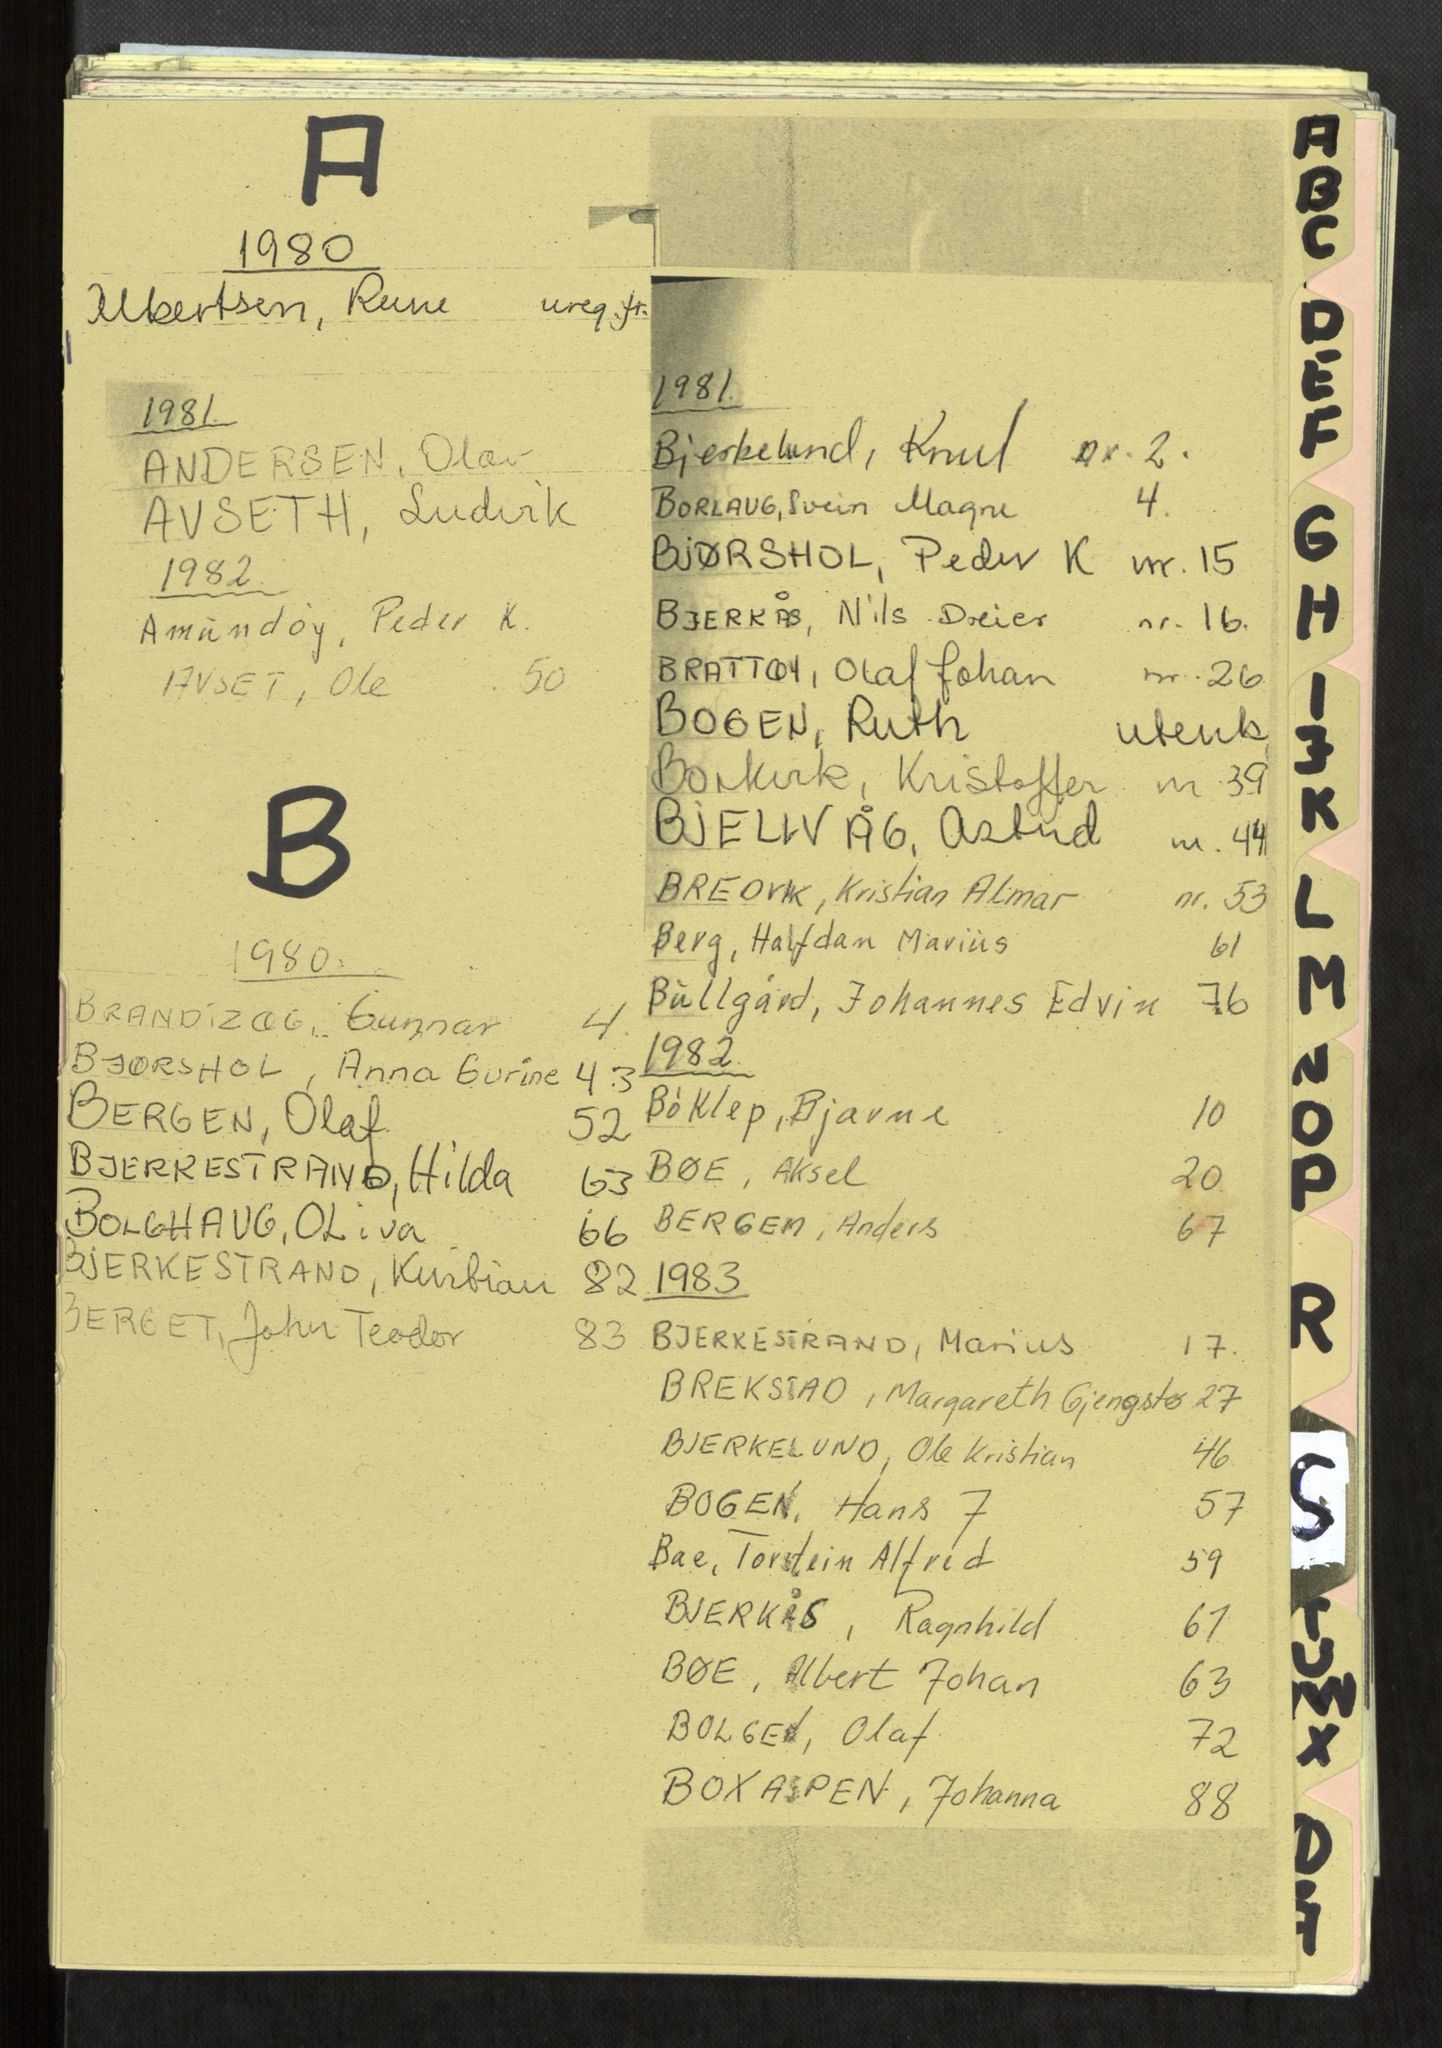 A
1980
Albertsen, Rune ureg.fr.
1981.
ANDERSEN, Olav
AVSETH, Ludvik
1982.
Amundøy, Peder K.
AVSET, Ole 50
B
1980.
BRANDTZÆG, Gunnar 4
BJØRSHOL, Anna Gurine 43
BERGEN, Olaf 52
BJERKESTRAND, Hilda 63
BOLGHAUG, OLiva 66
BJERKESTRAND, Kristian 82
BERGET, John Teodor 83
1981.
Bjerkelund, Knut nr. 2.
BORLAUG, Svein Magne 4.
BJØRSHOL, Peder K nr. 15
BJERKÅS, Nils Dreier nr. 16.
BRATTØY, Olaf Johan nr. 26
BOGEN, Ruth utenb.
Kristoffer nr 39
BJELLVÅG, Astrid nr. 44
BREDVIK, Kristian Almar nr. 53
Berg, Halfdan Marius 61
Bullgård, Johannes Edvin 76
1982.
BöKlep, Bjarne 10
BØE, Aksel 20.
BERGEM, Anders 67
1983
BJERKESTRAND, Marius 17.
BREKSTAD, Margareth Gjengstø 27
BJERKELUND, Ole Kristian 46
BOGEN, Hans J 57
Bae, Torstein Alfred 59
BJERKÅS, Ragnhild 61
BØE, Albert Johan 63
BOLGEN, Olaf 72
BOXASPEN, Johanna 88
A
B
C
D
E
F
G
H
I
J
K
L
M
N
O
P
R
S
T
U
W
X
Ø
Å